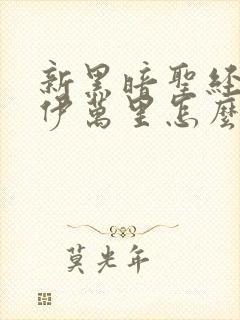 新黑暗聖經
伊萬里怎麼
莫光年